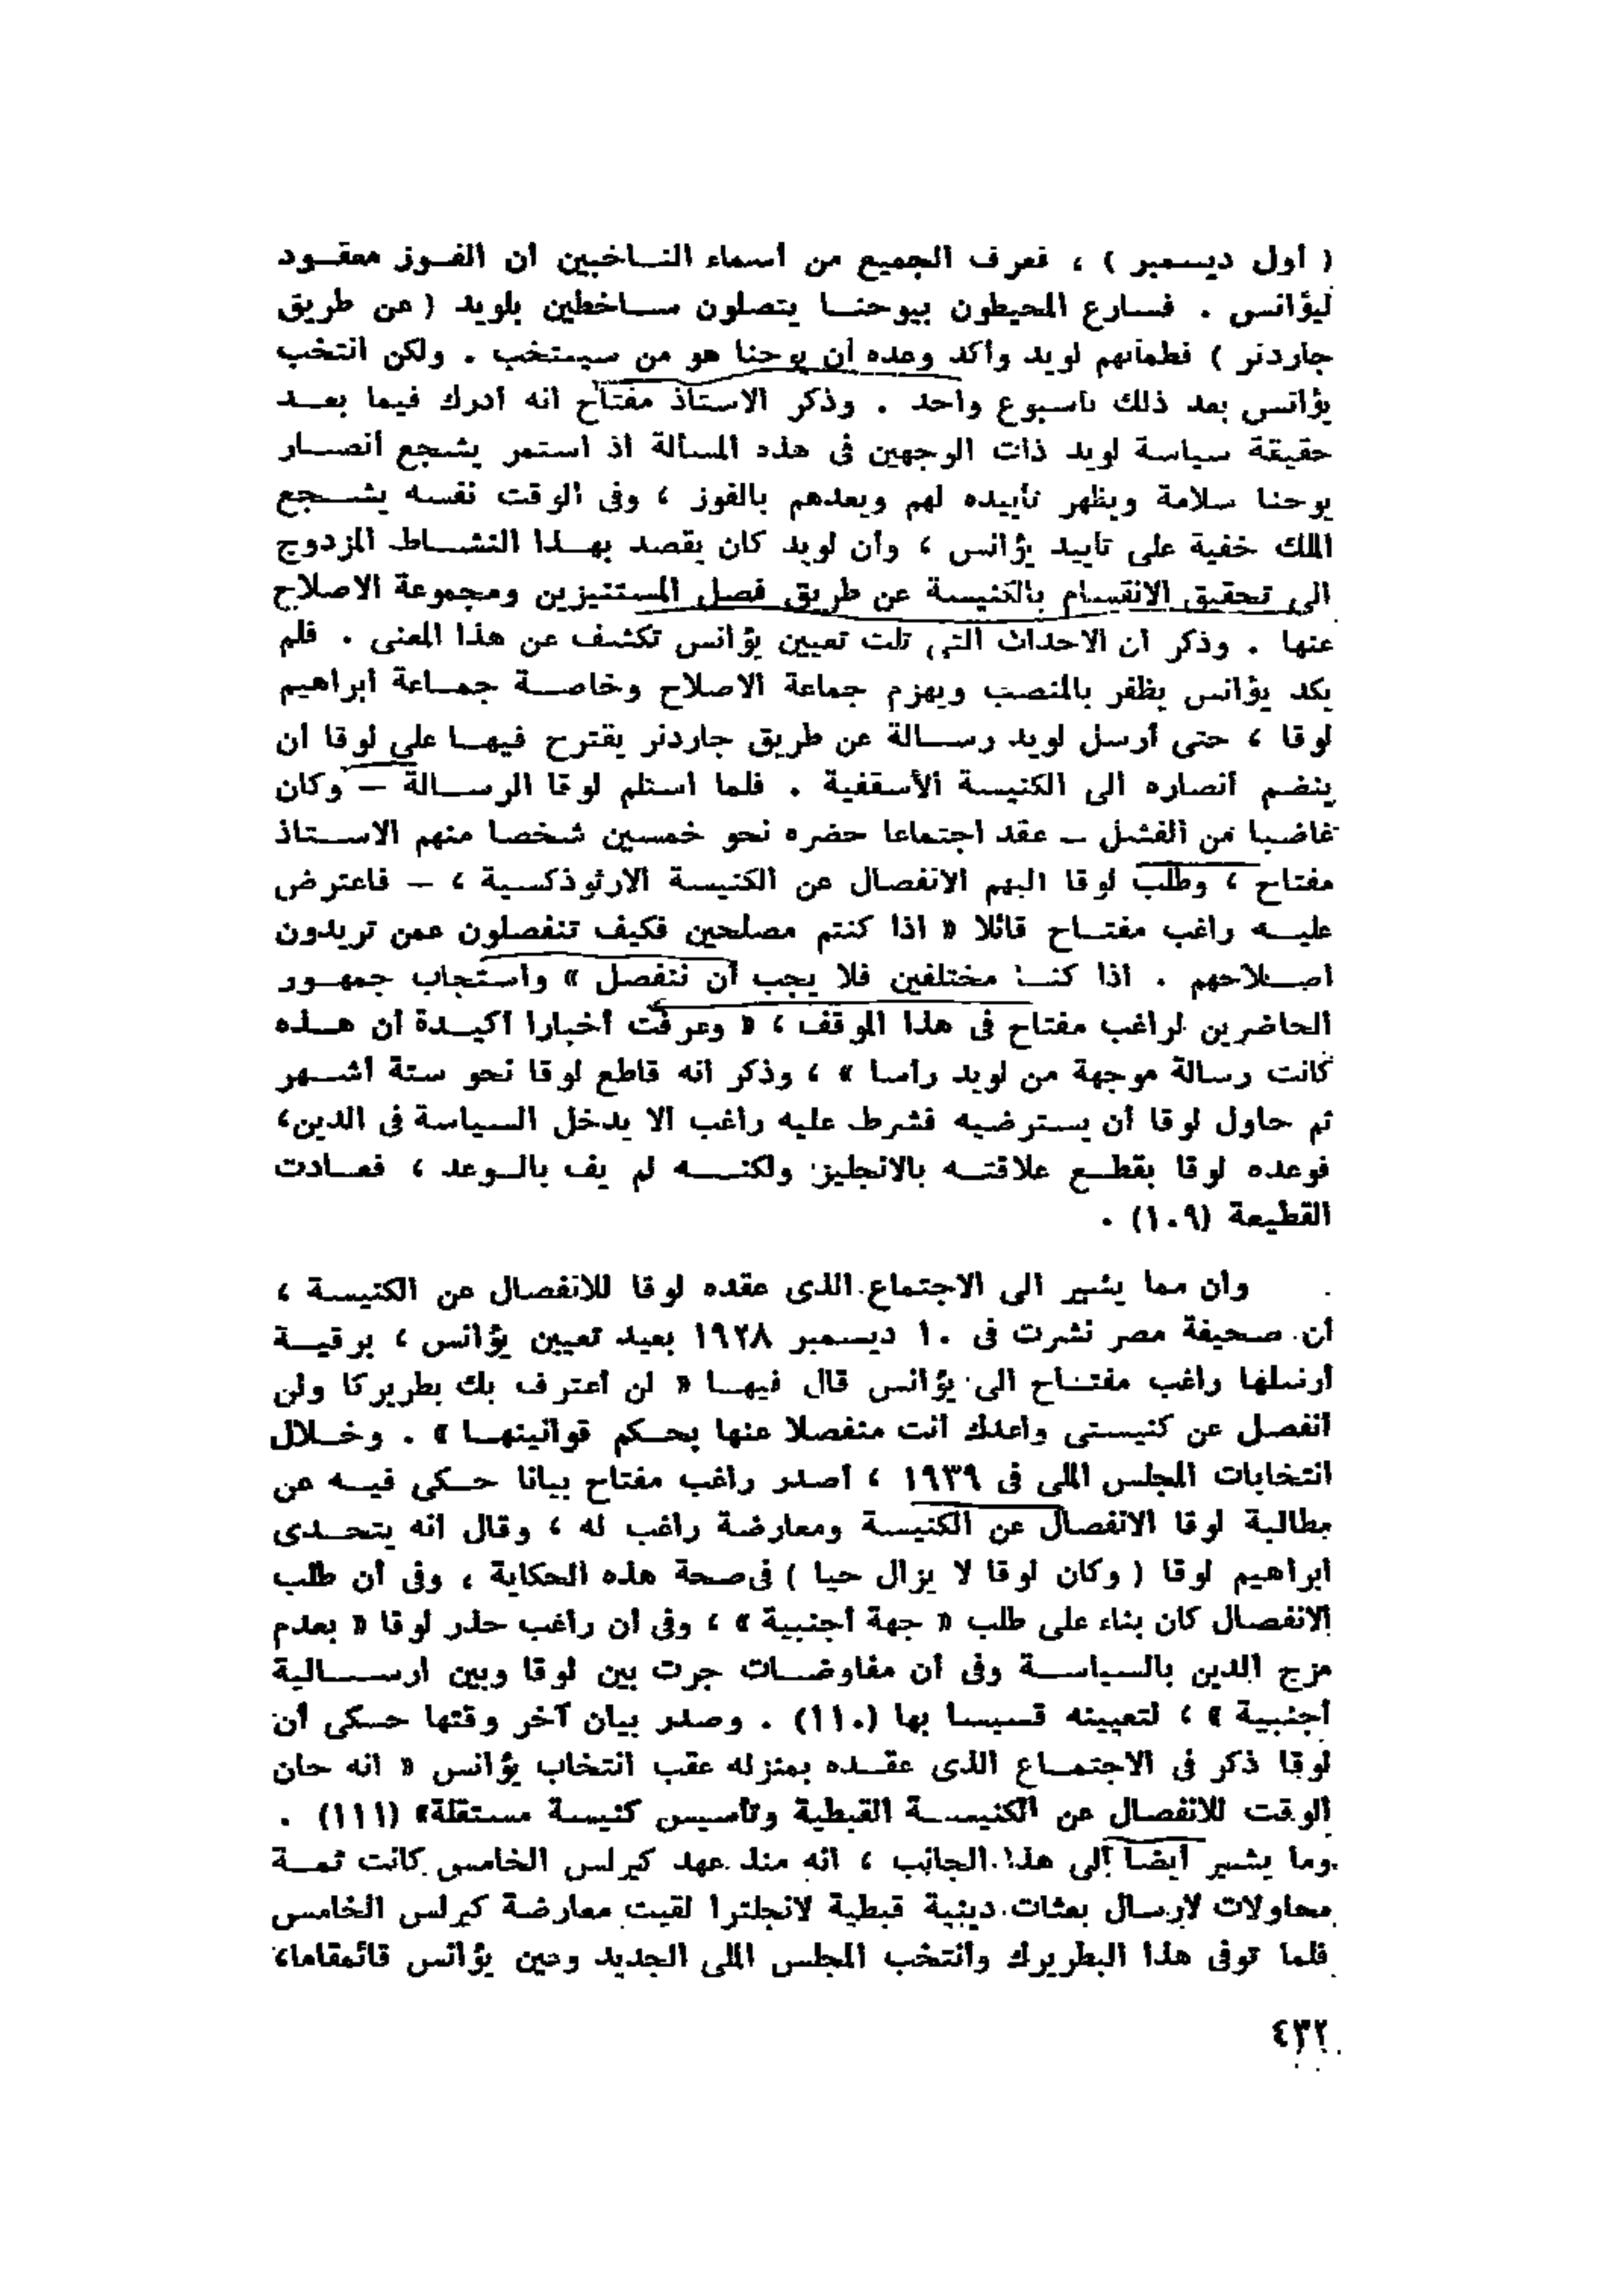 ( أول ديسمبر ) ، فعرف الجميع من أسماء النـاخبين أن الفـوز معقـود
ليؤانس . فسارع المحيطون بيوحنـا يتصلون سـاخطين بلويد ( عن طريق
جاردنر ) فطمأنهم لويد وأكد وعده أن يوحنا هو من سينتخب . ولكن انتخب
يؤانس بعد ذلك بأسبوع واحد . وذكر الاستاذ مفتاح أنه أدرك فيما بعـد
حقيقة سياسة لويد ذات الوجهين فى هذه المسألة اذ استمر يشجع أنصـار
يوحنا سلامة ويظهر تأييده لهم ويعدهم بالفوز ، وفى الوقت نفسه يشـجع
الملك خفية على تأييد يؤانس ، وأن لويد كان يقصد بهـذا النشـاط المزدوج
الى تحقيق الانقسام بالكنيسة عن طريق فصل المستنيرين ومجموعة الاصلاح
عنها . وذكر أن الاحداث التى تلت تعيين يؤانس تكشف عن هذا المعنى . فلم
يكد يؤانس يظفر بالمنصب ويهزم جماعة الاصلاح وخاصـة جمـاعة ابراهيم
لوقا ، حتى أرسل لويد رسـالة عن طريق جاردنر يقترح فيهـا على لوقا أن
ينضم أنصاره الى الكنيسة الأسقفية . فلما استلم لوقا الرسـالة – وكان
غاضبا من الفشل – عقد اجتماعا حضره نحو خمسين شخصا منهم الاسـتاذ
مفتاح ، وطلب لوقا اليهم الانفصال عن الكنيسة الارثوذكسية ، – فاعترض
عليـه راغب مفتـاح قائلا « اذا كنتم مصلحين فكيف تنفصلون عمن تريدون
اصـلاحهم . اذا كنـا مختلفين فلا يجب أن ننفصل » واستجاب جمهـور
الحاضرين لراغب مفتاح فى هذا الموقف ، « وعرفت أخبارا أكيـدة أن هـذه
كانت رسالة موجهة من لويد رأسا » ، وذكر أنه قاطع لوقا نحو ستة أشـهر
ثم حاول لوقا أن يسترضيه فشرط عليه راغب ألا يدخل السياسة فى الدين،
فوعده لوقا بقطـع علاقتـه بالانجليز ولكنـه لم يف بالـوعد ، فعـادت
القطيعة (١٠٩) .
وان مما يشير الى الاجتماع الذى عقده لوقا للانفصال عن الكنيسة ،
أن صحيفة مصر نشرت فى ١٠ ديسمبر ١٩٢٨ بعيد تعيين يؤانس ، برقيـة
أرسلها راغب مفتـاح الى يؤانس قال فيهـا « لن أعترف بك بطريركا ولن
أنفصل عن كنيستى وأعدك أنت منفصلا عنها بحـكم قوانينهـا » . وخـلال
انتخابات المجلس الملى فى ١٩٣٩ ، أصدر راغب مفتاح بيانا حـكى فيـه عن
مطالبة لوقا الانفصال عن الكنيسة ومعارضة راغب له ، وقال انه يتحـدى
ابراهيم لوقا ( وكان لوقا لا يزال حيا ) فى صحة هذه الحكاية ، وفى أن طلب
الانفصال كان بناء على طلب « جهة أجنبية » ، وفى أن راغب حذر لوقا « بعدم
مزج الدين بالسياسـة وفى أن مفاوضـات جرت بين لوقا وبين ارسـالية
أجنبية » ، لتعيينه قسيسا بها (١١٠) . وصدر بيان آخر وقتها حـكى أن
لوقا ذكر فى الاجتمـاع الذى عقـده بمنزله عقب انتخاب يؤانس « أنه حان
الوقت للانفصال عن الكنيسـة القبطية وتأسيس كنيسة مستقلة» (١١١) .
وما يشير أيضا الى هذا الجانب ، أنه منذ عهد كيرلس الخامس كانت ثمـة
محاولات لارسال بعثات دينية قبطية لانجلترا لقيت معارضة كيرلس الخامس
فلما توفى هذا البطريرك وانتخب المجلس الملى الجديد وعين يؤانس قائمقاما،
٤٣٢